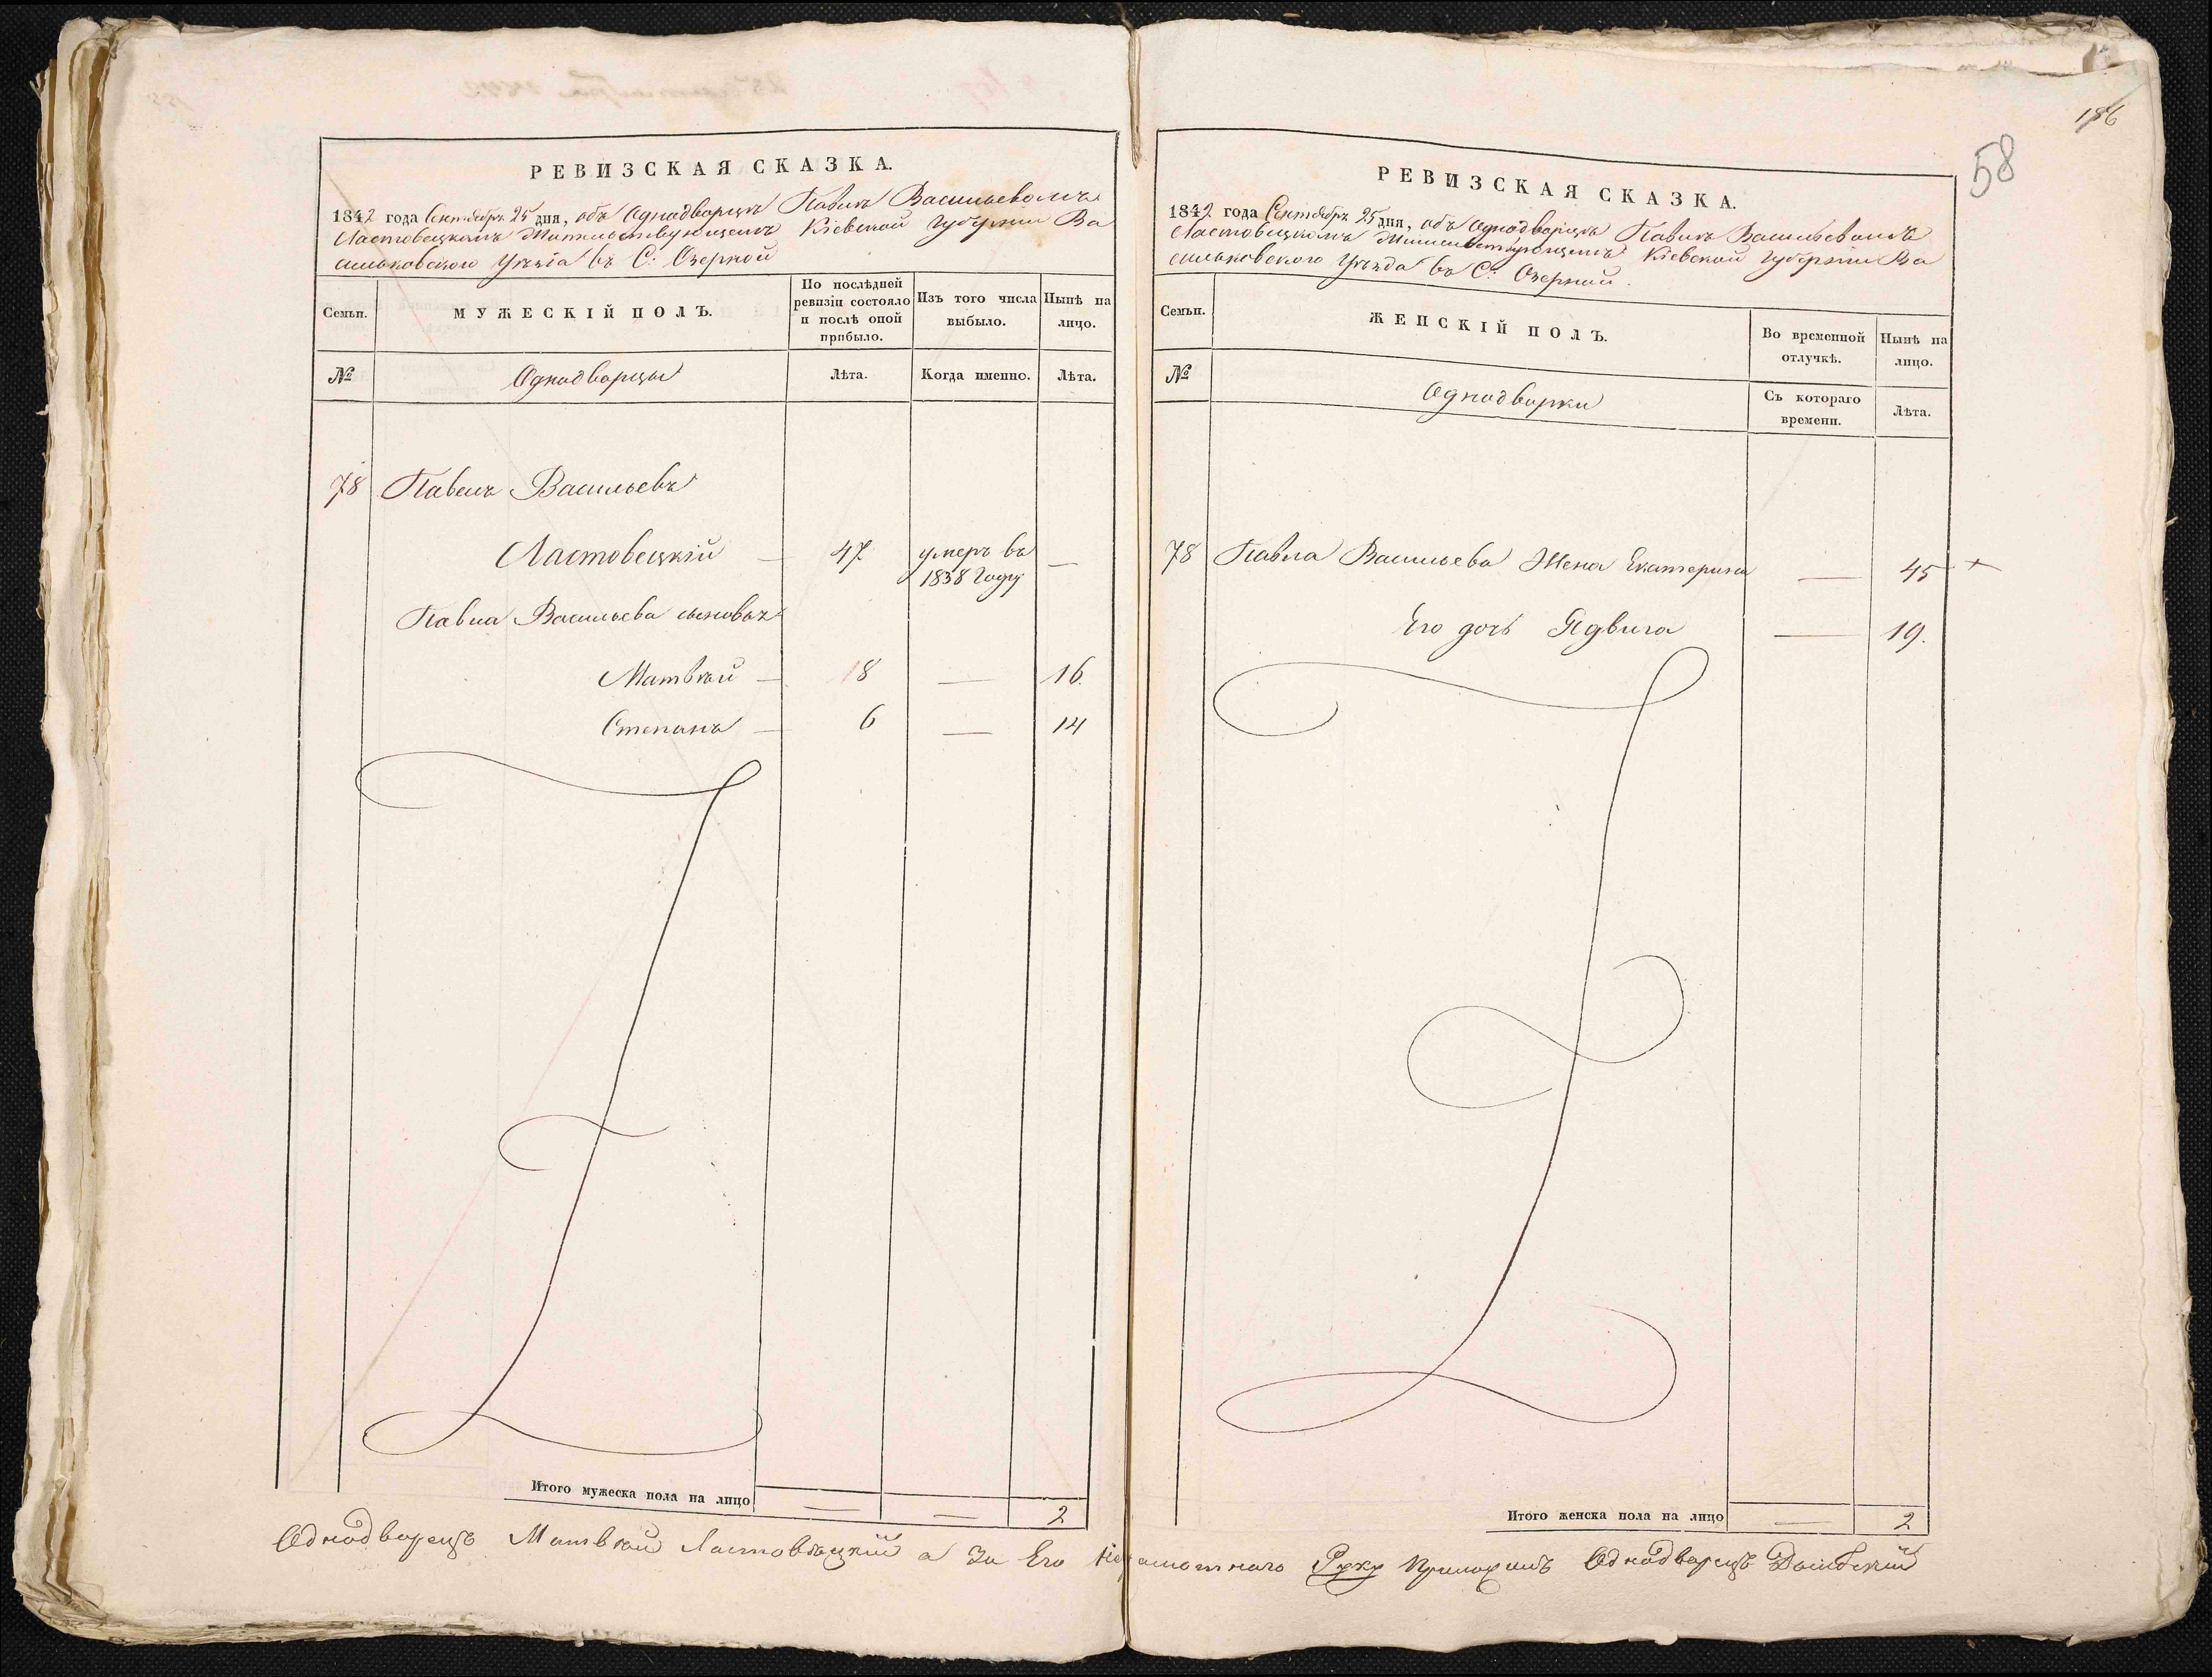 РЕВИЗСКАЯ СКАЗКА.
1842 года Сентября 25 дня, объ Однодворцѣ Павлѣ Васильевомъ
Ластовецкомъ Жительствующемъ Кіевской Губерніи Ва
сильковского Уѣзда въ С: Озерной
Семьи.
МУЖЕСКІЙ ПОЛЪ.
По послѣдней
ревизіи состояло
и послѣ оной
прибыло.
Изъ того числа
выбыло.
Нынѣ на
лицо.
№
Однодворцы
Лѣта.
Когда именно.
Лѣта.
78 Павелъ Васильевъ
Ластовецкій — 47 умеръ въ —
1838 Году
Павла Васильева сыновья
Матвѣй — 18 — 16.
Степанъ — 6 — 14
Итого мужеска пола на лицо — — 2
186
58
РЕВИЗСКАЯ СКАЗКА.
1842 года Сентября 25 дня, объ Однодворцѣ Павлѣ Васильевомъ
Ластовецкомъ Жительствующемъ Кіевской Губерніи Ва
сильковского Уѣзда въ С: Озерной.
Семьи.
ЖЕНСКІЙ ПОЛЪ.
Во временной
отлучкѣ.
Нынѣ на
лицо.
№
Однодворки
Съ котораго
времени.
Лѣта.
78 Павла Васильева Жена Екатерина — 45 +
Его дочь Ядвига — 19.
Итого женска пола на лицо — 2
Однодворецъ Матвѣй Ластовѣцкій а За Его Неграмотнаго Руку Приложилъ Однодворецъ